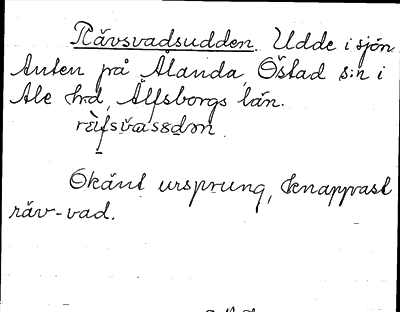 Rävsvadsudden. Udde i sjön
Anten på Ålanda, Östad s:n i
Ale hrd, Älfsborgs län.
Okänt ursprung, knappast
räv-vad.